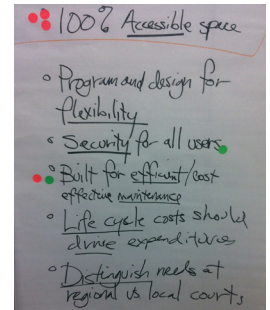 100% Accessible space
◦ Program and design for
flexibility
◦ Security for all users
◦ Built for efficient/cost
effective maintenance
◦ Life cycle costs should
drive expenditures
◦ Distinguish needs at
regional vs local courts